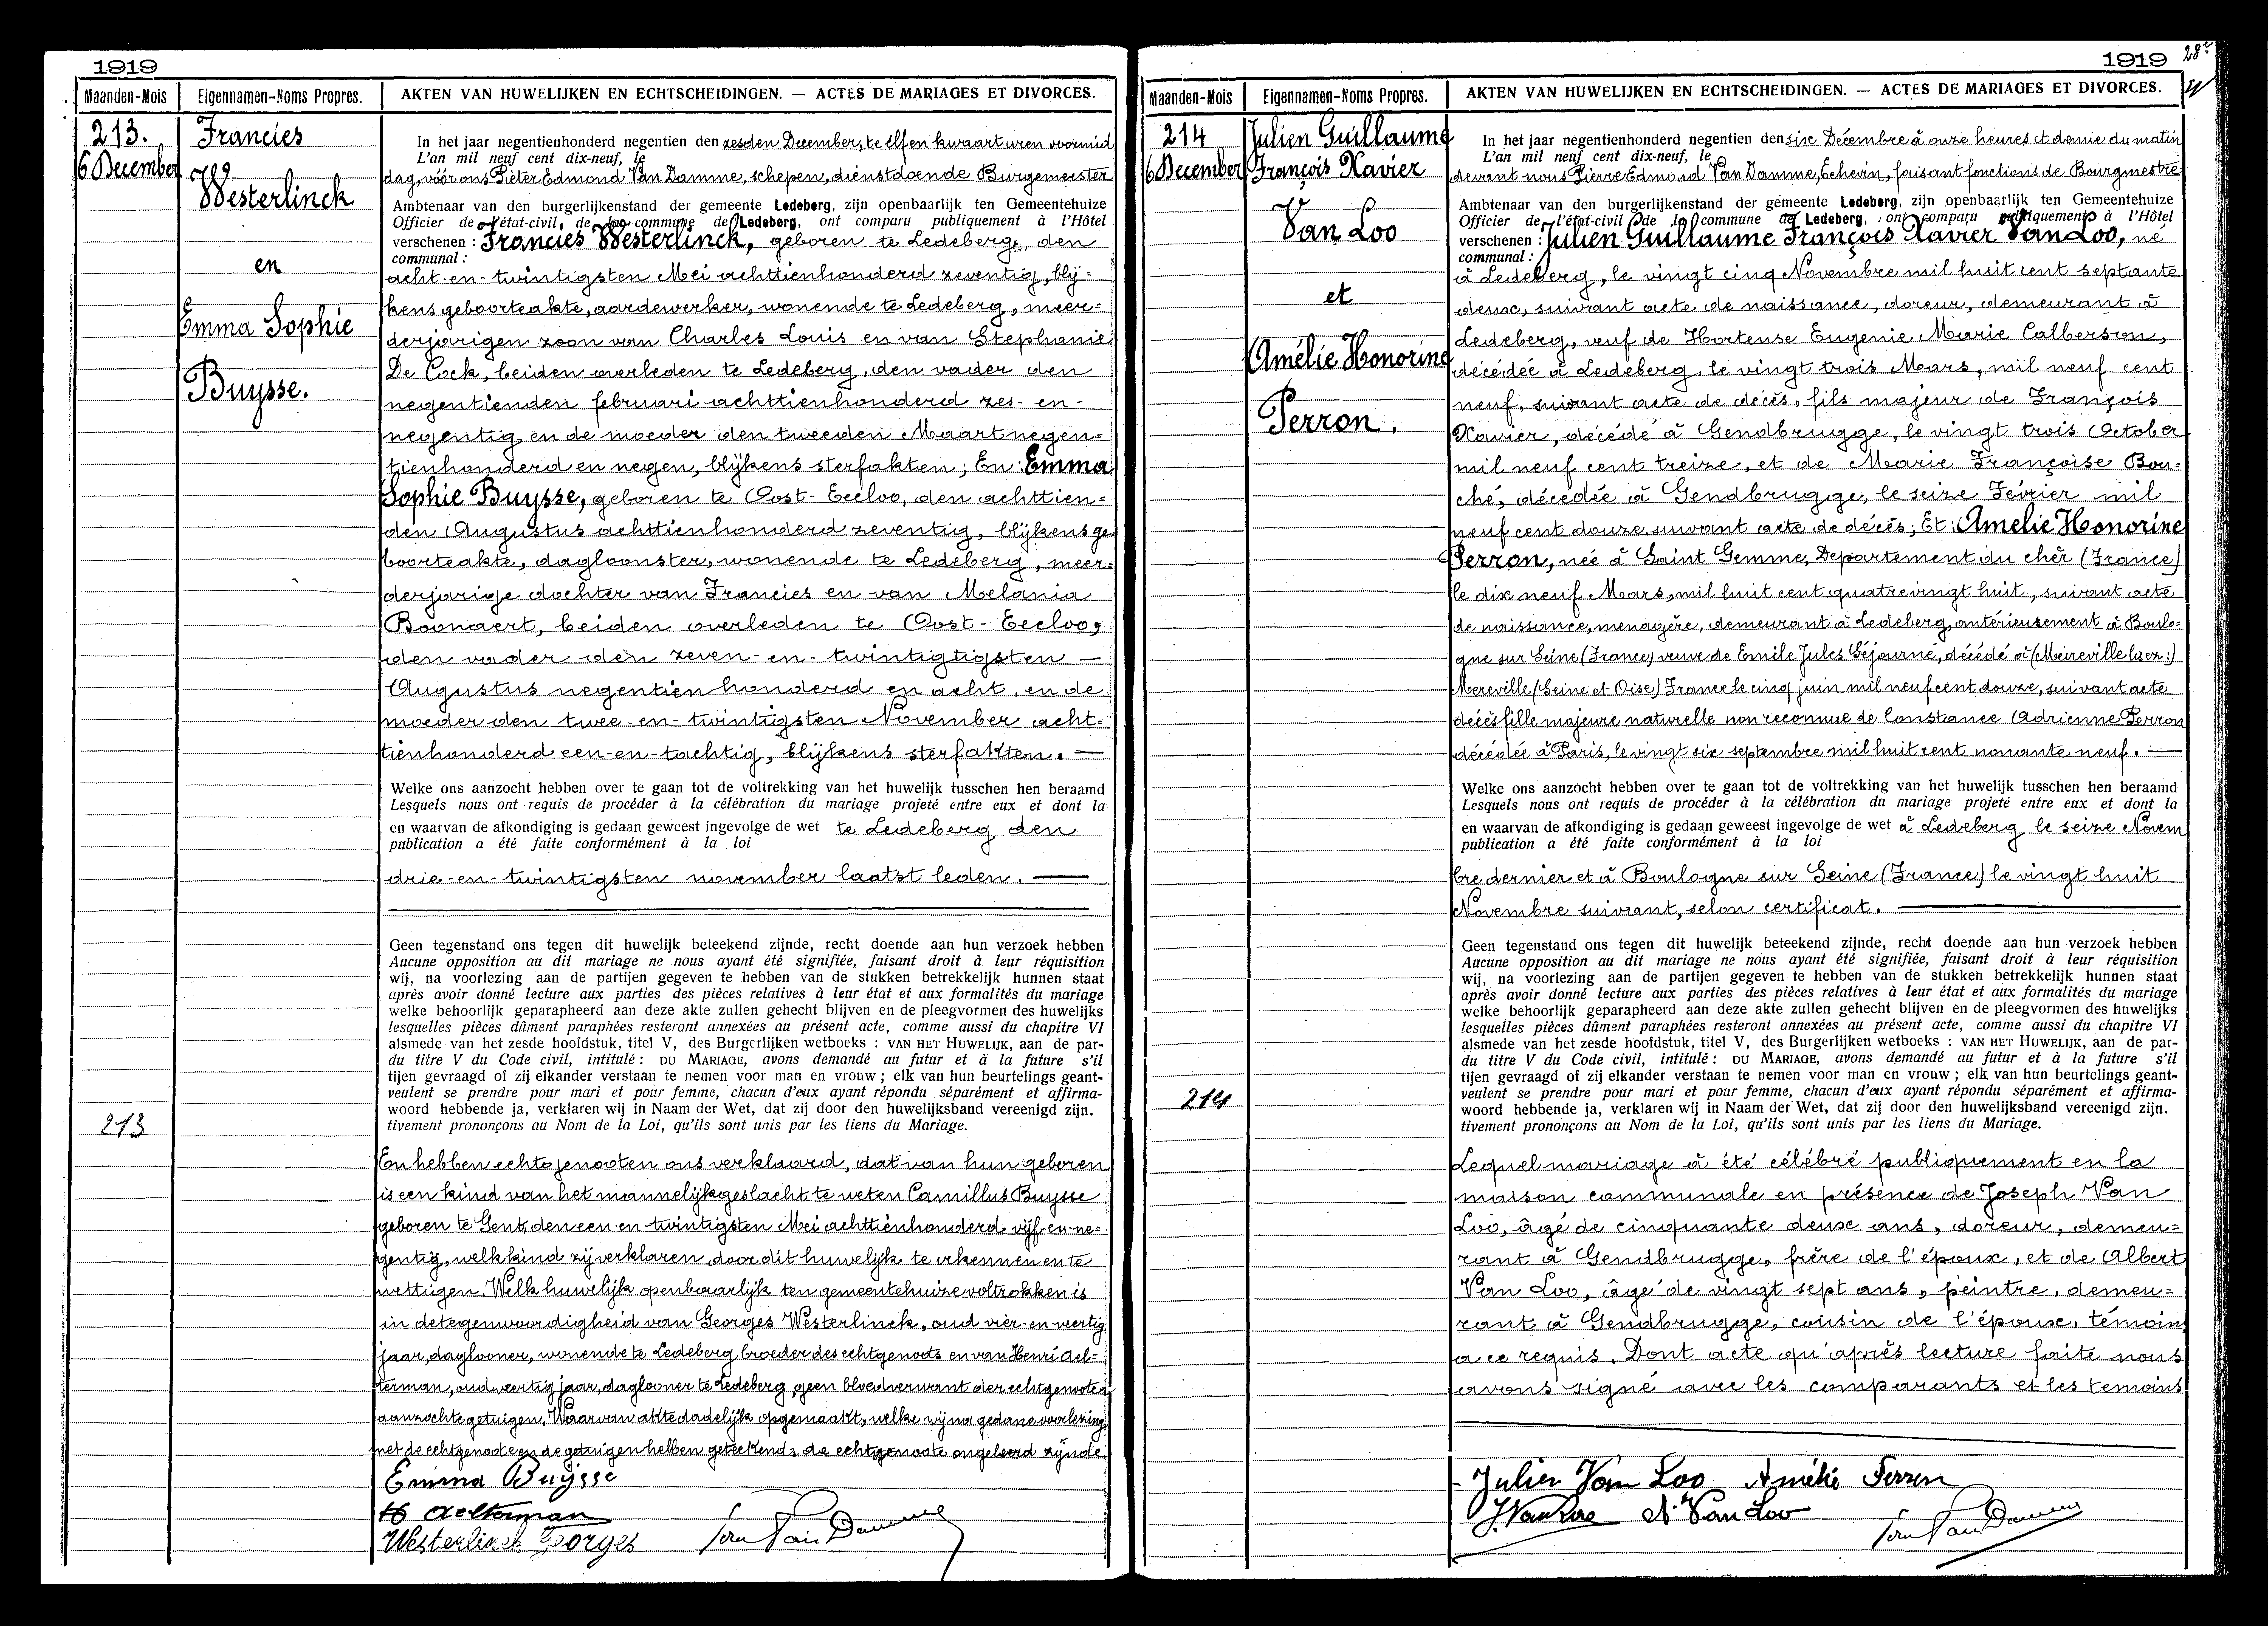 1919
Maanden-Mois
Eigennamen-Noms Propres.
AKTEN VAN HUWELIJKEN EN ECHTSCHEIDINGEN. — ACTES DE MARIAGES ET DIVORCES.
213.
6 December
Francies
Westerlinck
en
Emma Sophie
Buysse.
213
In het jaar negentienhonderd negentien den zesden December, te elf en kwaart uren voormid
L'an mil neuf cent dix-neuf, le
dag, vóór ons Pieter Edmond Van Damme, schepen, dienstdoende Burgemeester
Ambtenaar van den burgerlijkenstand der gemeente Ledeberg, zijn openbaarlijk ten Gemeentehuize
Officier de l'état-civil, de la commune de Ledeberg, ont comparu publiquement à l'Hôtel
verschenen : Francies Westerlinck, geboren te Ledeberg, den
communal :
acht-en-twintigsten Mei achttienhonderd zeventig, blij=
kens geboorteakte, aardewerker, wonende te Ledeberg, meer=
derjarigen zoon van Charles Louis en van Stephanie
De Cock, beiden overleden te Ledeberg, den vader den
negentienden februari achttienhonderd zes-en-
negentig en de moeder den tweeden Maart negen=
tienhonderd en negen, blijkens sterfakten; En: Emma
Sophie Buysse, geboren te Oost-Eecloo, den achttien=
den Augustus achttienhonderd zeventig, blijkens ge
boorteakte, dagloonster, wonende te Ledeberg, meer=
derjarige dochter van Francies en van Melania
Boonaert, beiden overleden te Oost-Eecloo,
den vader den zeven-en-twintigtigsten —
Augustus negentienhonderd en acht, en de
moeder den twee-en-twintigsten November acht=
tienhonderd een-en-tachtig, blijkens sterfakten. —
Welke ons aanzocht hebben over te gaan tot de voltrekking van het huwelijk tusschen hen beraamd
Lesquels nous ont requis de procéder à la célébration du mariage projeté entre eux et dont la
en waarvan de afkondiging is gedaan geweest ingevolge de wet te Ledeberg den
publication a été faite conformément à la loi
drie-en-twintigsten november laatst leden. —
Geen tegenstand ons tegen dit huwelijk beteekend zijnde, recht doende aan hun verzoek hebben
Aucune opposition au dit mariage ne nous ayant été signifiée, faisant droit à leur réquisition
wij, na voorlezing aan de partijen gegeven te hebben van de stukken betrekkelijk hunnen staat
après avoir donné lecture aux parties des pièces relatives à leur état et aux formalités du mariage
welke behoorlijk geparapheerd aan deze akte zullen gehecht blijven en de pleegvormen des huwelijks
lesquelles pièces dûment paraphées resteront annexées au présent acte, comme aussi du chapitre VI
alsmede van het zesde hoofdstuk, titel V, des Burgerlijken wetboeks : VAN HET HUWELIJK, aan de par-
du titre V du Code civil, intitulé : DU MARIAGE, avons demandé au futur et à la future s'il
tijen gevraagd of zij elkander verstaan te nemen voor man en vrouw ; elk van hun beurtelings geant-
veulent se prendre pour mari et pour femme, chacun d'eux ayant répondu séparément et affirma-
woord hebbende ja, verklaren wij in Naam der Wet, dat zij door den huwelijksband vereenigd zijn.
tivement prononçons au Nom de la Loi, qu'ils sont unis par les liens du Mariage.
En hebben echtgenooten ons verklaard, dat van hun geboren
is een kind van het mannelijk geslacht te weten Camillus Buysse
geboren te Gent, den een en twintigsten Mei achttienhonderd vijf-en-ne=
gentig, welk kind zij verklaren door dit huwelijk te erkennen en te
wettigen. Welk huwelijk openbaarlijk ten gemeentehuize voltrokken is
in de tegenwoordigheid van Georges Westerlinck, oud vier-en-veertig
jaar, daglooner, wonende te Ledeberg, broeder des echtgenoots en van Henri Ael=
terman, oud veertig jaar, daglooner te Ledeberg, geen bloedverwant der echtgenooten
aanzochte getuigen. Waarvan akte dadelijk opgemaakt, welke wij na gedane voorlezing,
met de echtgenoote en de getuigen hebben geteekend, de echtgenoote ongeleerd zijnde
Emma Buijsse
H Aelterman
Westerlinck Georges
Van Damme
1919
Maanden-Mois
Eigennamen-Noms Propres.
AKTEN VAN HUWELIJKEN EN ECHTSCHEIDINGEN. — ACTES DE MARIAGES ET DIVORCES.
214
6 December
Julien Guillaume
François Xavier
Van Loo
et
Amélie Honorine
Perron.
214
In het jaar negentienhonderd negentien den six Décembre à onze heures et demie du matin
L'an mil neuf cent dix-neuf, le
devant nous Pierre Edmond Van Damme, Echevin, faisant fonctions de Bourgmestre
Ambtenaar van den burgerlijkenstand der gemeente Ledeberg, zijn openbaarlijk ten Gemeentehuize
Officier de l'état-civil de la commune de Ledeberg, ont comparu publiquement à l'Hôtel
verschenen : Julien Guillaume François Xavier Van Loo, né
communal :
à Ledeberg, le vingt cinq Novembre mil huit cent septante
deux, suivant acte de naissance, doreur, demeurant à
Ledeberg, veuf de Hortense Eugenie Marie Calberson,
décédée à Ledeberg, le vingt trois Mars, mil neuf cent
neuf, suivant acte de décès, fils majeur de François
Xavier, décédé à Gendbrugge, le vingt trois October
mil neuf cent treize, et de Marie Françoise Bou=
ché, décédée à Gendbrugge, le seize Février mil
neuf cent douze suivant acte de décès; Et: Amelie Honorine
Perron, née à Saint Gemme, Departement du chèr (France)
le dix neuf Mars, mil huit cent quatrevingt huit, suivant acte
de naissance, menagère, demeurant à Ledeberg, antérieusement à Boulo=
gne sur Seine (France) veuve de Emile Jules Séjourné, décédé à (Meireville lisez:)
Mereville (Seine et Oise) France le cinq juin mil neuf cent douze, suivant acte
décès fille majeure naturelle non reconnue de Constance Adrienne Perron
décédée à Paris, le vingt six septembre mil huit cent nonante neuf. —
Welke ons aanzocht hebben over te gaan tot de voltrekking van het huwelijk tusschen hen beraamd
Lesquels nous ont requis de procéder à la célébration du mariage projeté entre eux et dont la
en waarvan de afkondiging is gedaan geweest ingevolge de wet à Ledeberg le seize Novem
publication a été faite conformément à la loi
bre dernier et à Boulogne sur Seine (France) le vingt huit
Novembre suivant, selon certificat. —
Geen tegenstand ons tegen dit huwelijk beteekend zijnde, recht doende aan hun verzoek hebben
Aucune opposition au dit mariage ne nous ayant été signifiée, faisant droit à leur réquisition
wij, na voorlezing aan de partijen gegeven te hebben van de stukken betrekkelijk hunnen staat
après avoir donné lecture aux parties des pièces relatives à leur état et aux formalités du mariage
welke behoorlijk geparapheerd aan deze akte zullen gehecht blijven en de pleegvormen des huwelijks
lesquelles pièces dûment paraphées resteront annexées au présent acte, comme aussi du chapitre VI
alsmede van het zesde hoofdstuk, titel V, des Burgerlijken wetboeks : VAN HET HUWELIJK, aan de par-
du titre V du Code civil, intitulé : DU MARIAGE, avons demandé au futur et à la future s'il
tijen gevraagd of zij elkander verstaan te nemen voor man en vrouw ; elk van hun beurtelings geant-
veulent se prendre pour mari et pour femme, chacun d'eux ayant répondu séparément et affirma-
woord hebbende ja, verklaren wij in Naam der Wet, dat zij door den huwelijksband vereenigd zijn.
tivement prononçons au Nom de la Loi, qu'ils sont unis par les liens du Mariage.
Lequel mariage à été célébré publiquement en la
maison communale en présence de Joseph Van
Loo, âgé de cinquante deux ans, doreur, demeu=
rant à Gendbrugge, frère de l'époux, et de Albert
Van Loo, âgé de vingt sept ans, peintre, demeu=
rant à Gendbrugge, cousin de l'époux, témoins
a ce requis. Dont acte qu'après lecture faite nous
avons signé avec les comparants et les temoins
Julien Van Loo Amélie Perron
J. Van Loo A Van Loo
Van Damme